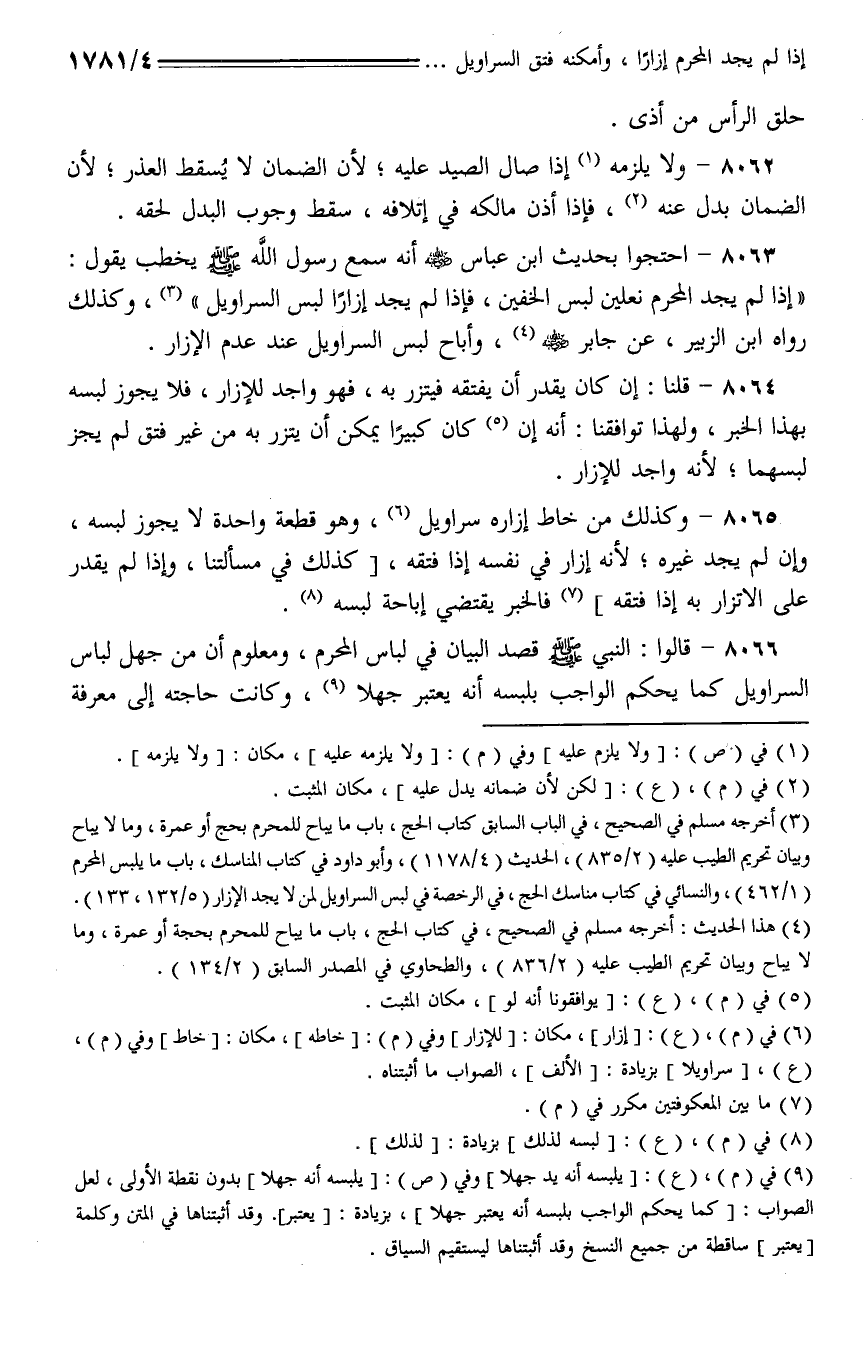 إذا لم يجد المحرم إزارًا ، وأمكنه فتق السراويل ... ١٧٨١/٤
حلق الرأس من أذى .
٨٠٦٢ - ولا يلزمه (١) إذا صال الصيد عليه ؛ لأن الضمان لا يُسقط العذر ؛ لأن
الضمان بدل عنه (٢) ، فإذا أذن مالكه في إتلافه ، سقط وجوب البدل لحقه .
٨٠٦٣ - احتجوا بحديث ابن عباس ﷺ أنه سمع رسول اللَّه ﷺ يخطب يقول :
« إذا لم يجد المحرم نعلين لبس الخفين ، فإذا لم يجد إزارًا لبس السراويل » (٣) ، وكذلك
رواه ابن الزبير ، عن جابر ﷺ (٤) ، وأباح لبس السراويل عند عدم الإزار .
٨٠٦٤ - قلنا : إن كان يقدر أن يفتقه فيتزر به ، فهو واجد للإزار ، فلا يجوز لبسه
بهذا الخبر ، ولهذا توافقنا : أنه إن (٥) كان كبيرًا يمكن أن يتزر به من غير فتق لم يجز
لبسهما ؛ لأنه واجد للإزار .
٨٠٦٥ - وكذلك من خاط إزاره سراويل (٦) ، وهو قطعة واحدة لا يجوز لبسه ،
وإن لم يجد غيره ؛ لأنه إزار في نفسه إذا فتقه ، [ كذلك في مسألتنا ، وإذا لم يقدر
على الاتزار به إذا فتقه ] (٧) فالخبر يقتضي إباحة لبسه (٨) .
٨٠٦٦ - قالوا : النبي ﷺ قصد البيان في لباس المحرم ، ومعلوم أن من جهل لباس
السراويل كما يحكم الواجب بلبسه أنه يعتبر جهلا (٩) ، وكانت حاجته إلى معرفة
(١) في ( ص ) : [ ولا يلزم عليه ] وفي ( م ) : [ ولا يلزمه عليه ] ، مكان : [ ولا يلزمه ] .
(٢) في ( م ) ، ( ع ) : [ لكن لأن ضمانه يدل عليه ] ، مكان المثبت .
(٣) أخرجه مسلم في الصحيح ، في الباب السابق كتاب الحج ، باب ما يباح للمحرم بحج أو عمرة ، وما لا يباح
وبيان تحريم الطيب عليه ( ٨٣٥/٢ ) ، الحديث ( ١١٧٨/٤ ) ، وأبو داود في كتاب المناسك ، باب ما يلبس المحرم
( ٤٦٢/١ ) ، والنسائي في كتاب مناسك الحج ، في الرخصة في لبس السراويل لمن لا يجد الإزار ( ١٣٢/٥ ، ١٣٣ ) .
(٤) هذا الحديث : أخرجه مسلم في الصحيح ، في كتاب الحج ، باب ما يباح للمحرم بحجة أو عمرة ، وما
لا يباح وبيان تحريم الطيب عليه ( ٨٣٦/٢ ) ، والطحاوي في المصدر السابق ( ١٣٤/٢ ) .
(٥) في ( م ) ، ( ع ) : [ يوافقونا أنه لو ] ، مكان المثبت .
(٦) في ( م ) ، ( ع ) : [ إزار ] ، مكان : [ للإزار ] وفي ( م ) : [ خاطه ] ، مكان : [ خاط ] وفي ( م ) ،
( ع ) ، [ سراويلا ] بزيادة : [ الألف ] ، الصواب ما أثبتناه .
(٧) ما بين المعكوفتين مكرر في ( م ) .
(٨) في ( م ) ، ( ع ) : [ لبسه لذلك ] بزيادة : [ لذلك ] .
(٩) في ( م ) ، ( ع ) : [ يلبسه أنه يد جهلا ] وفي ( ص ) : [ يلبسه أنه جهلا ] بدون نقطة الأولى ، لعل
الصواب : [ كما يحكم الواجب بلبسه أنه يعتبر جهلا ] ، بزيادة : [ يعتبر]. وقد أثبتناها في المتن وكلمة
[ يعتبر ] ساقطة من جميع النسخ وقد أثبتناها ليستقيم السياق .